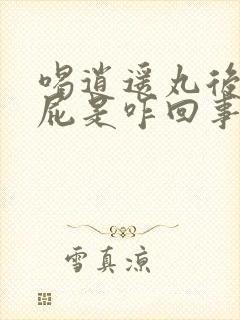 喝逍遥丸後
屁是咋回事
雪真凉